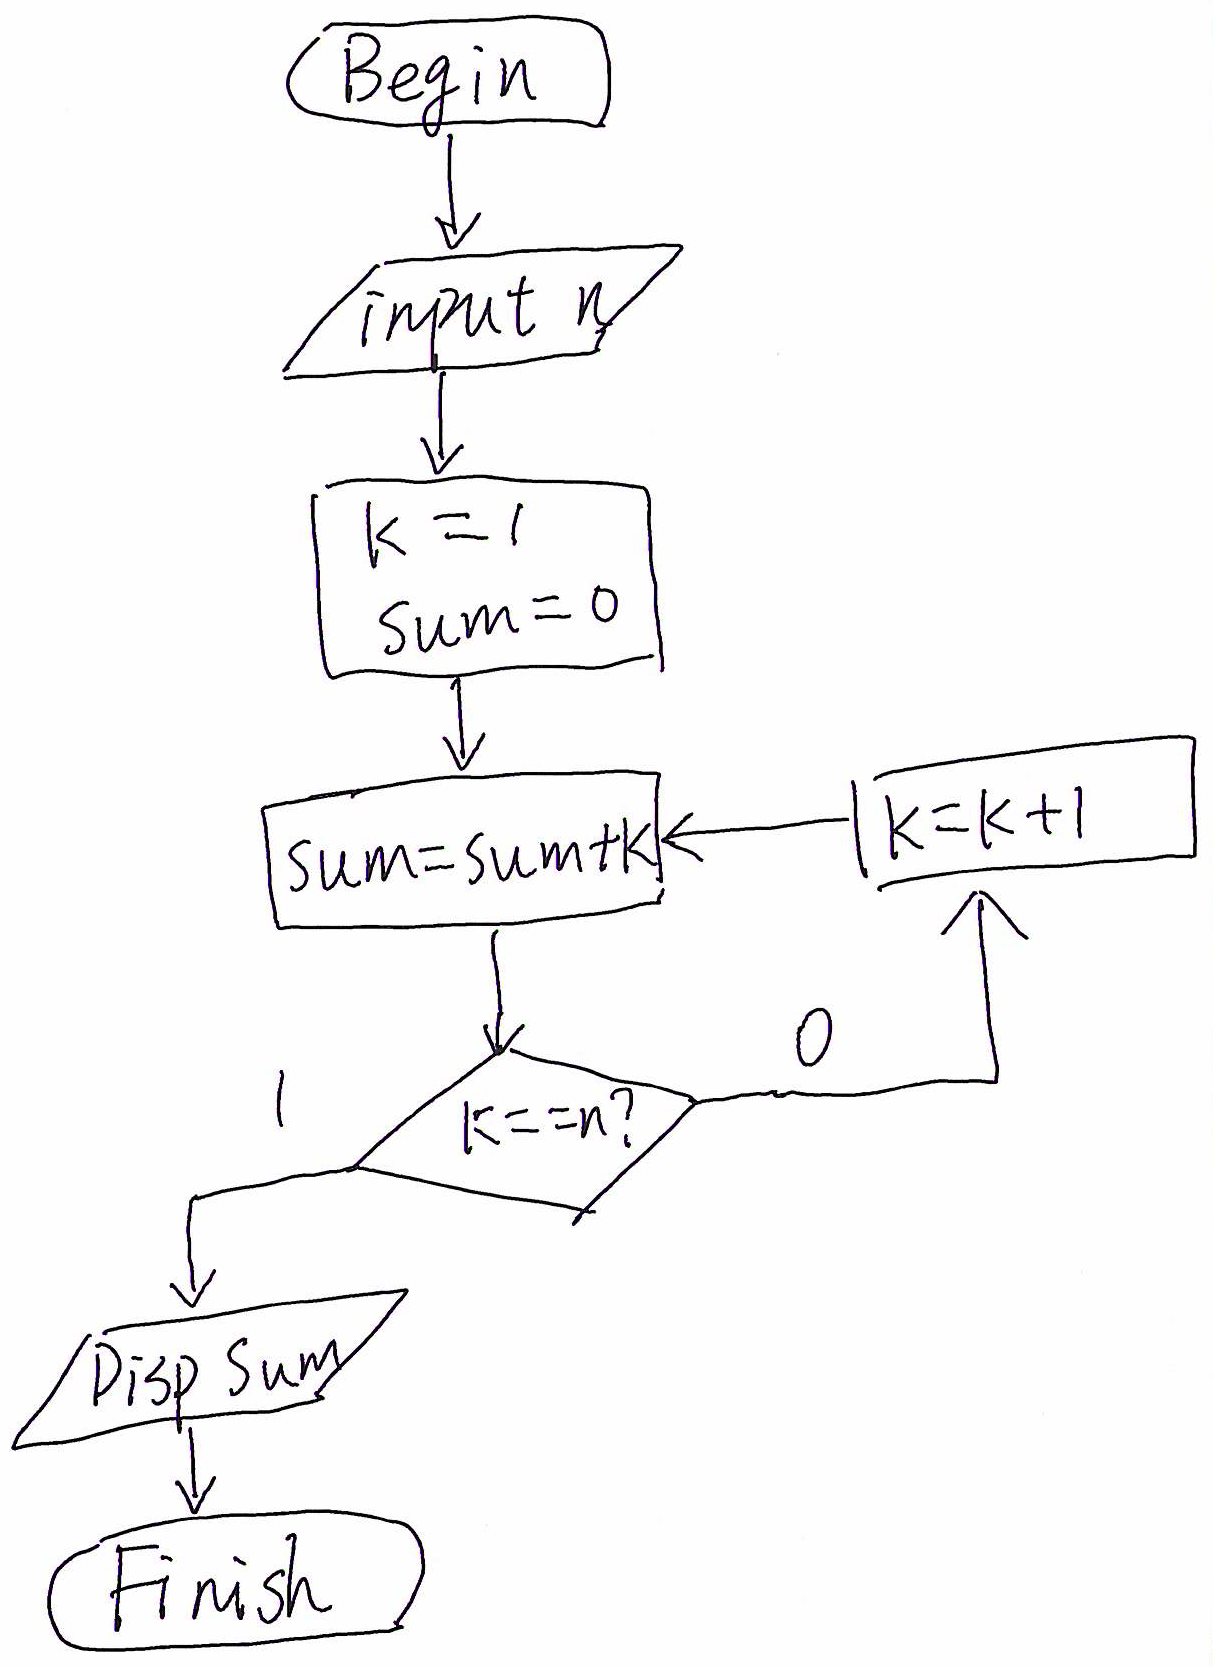 Begin
input n
k = 1
sum = 0
sum=sum+k
k=k+1
0
1
k==n?
Disp Sum
Finish